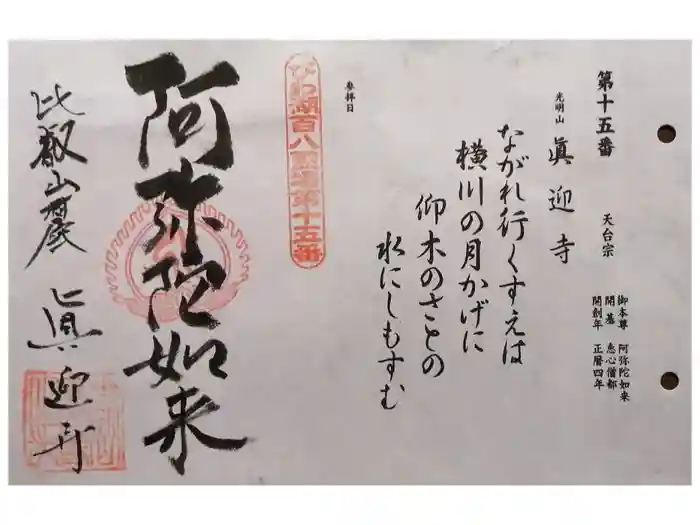 第十五番
天台宗
御本尊 阿弥陀如来
開基 恵心僧都
開創年 正暦四年
光明山 眞迎寺
ながれ行くすえは
横川の月かげに
仰木のさとの
水にしもすむ
参拝日
びわ湖百八霊場第十五番
阿弥陀如来
比叡山麓 眞迎寺